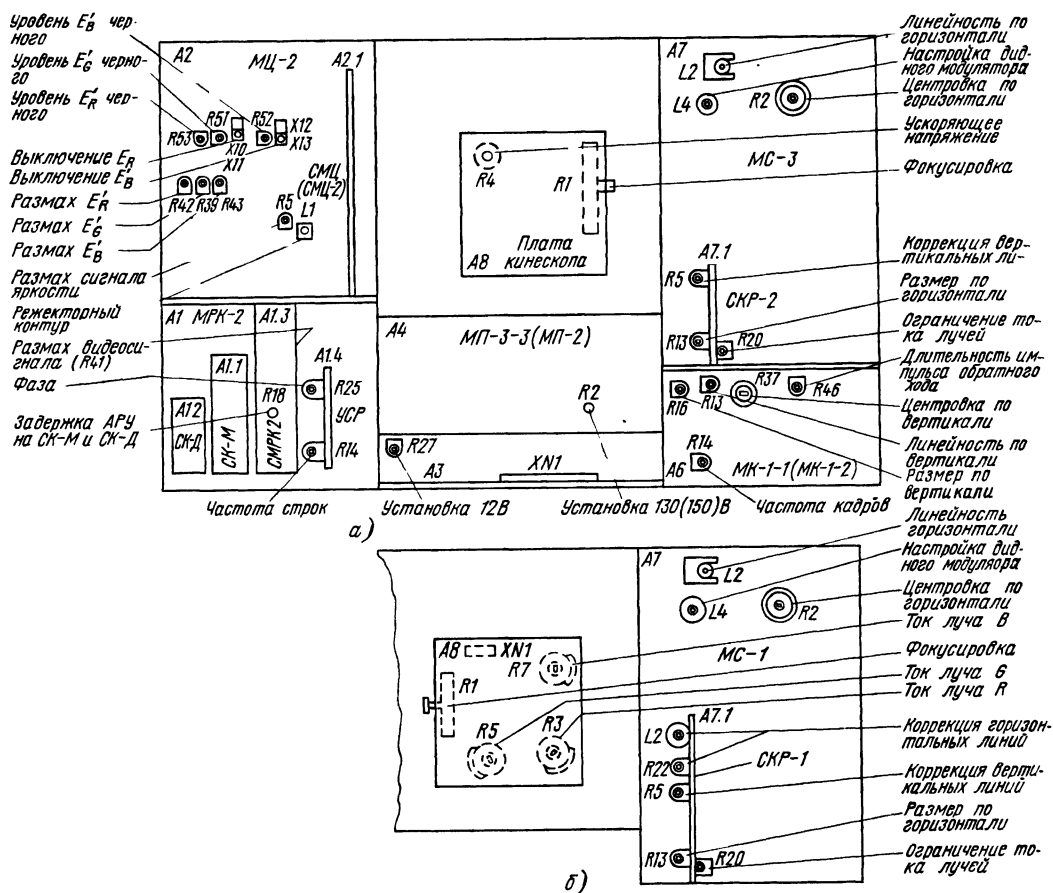 Уровень E'B чер-
ного
Уровень E'G черно-
го
Уровень E'R чер-
ного
Выключение ER
Выключение E'B
Размах E'R
Размах E'G
Размах E'B
Размах сигнала
яркости
Режекторный
контур
Размах видеоси-
гнала (R41)
Фаза
Задержка АРУ
на СК-М и СК-Д
A2
МЦ-2
A2.1
R53
R51
R52
X12
X13
X10
X11
R42
R39
R43
СМЦ
(СМЦ-2)
R5
L1
A1 МРК-2
A1.3
A1.4
A1.1
A1.2
СК-Д
СК-М
СМРК2
R18
R25
УСР
R14
Частота строк
R4
R1
A8
Плата
кинескопа
A4
МП-3-3(МП-2)
R2
R27
A3
XN1
Установка 12В
Установка 130(150)В
A7
L2
L4
R2
МС-3
A7.1
R5
СКР-2
R13
R20
R16
R13
R37
R46
R14
A6
МК-1-1(МК-1-2)
Частота кадров
Линейность по
горизонтали
Настройка диод-
ного модулятора
Центровка по
горизонтали
Ускоряющее
напряжение
Фокусировка
Коррекция вер-
тикальных ли-
Размер по
горизонтали
Ограничение то-
ка лучей
Длительность им-
пульса обратного
хода
Центровка по
вертикали
Линейность по
вертикали
Размер по
вертикали
а)
A8
XN1
R7
R1
R5
R3
A7
L2
L4
R2
МС-1
A7.1
L2
R22
СКР-1
R5
R13
R20
Линейность
горизонтали
Настройка диод-
ного модуляора
Центровка по
горизонтали
Ток луча B
Фокусировка
Ток луча G
Ток луча R
Коррекция горизон-
тальных линий
Коррекция верти-
кальных линий
Размер по
горизонтали
Ограничение то-
ка лучей
б)